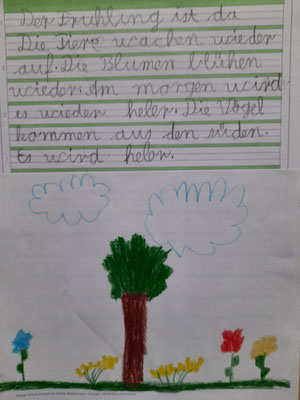 Der Frühling ist da
Die Tiere wachen wieder
auf. Die Blumen blühen
wieder. Am morgen wird
es wieder heler. Die Vögel
kommen aus den süden.
Es wird heler.